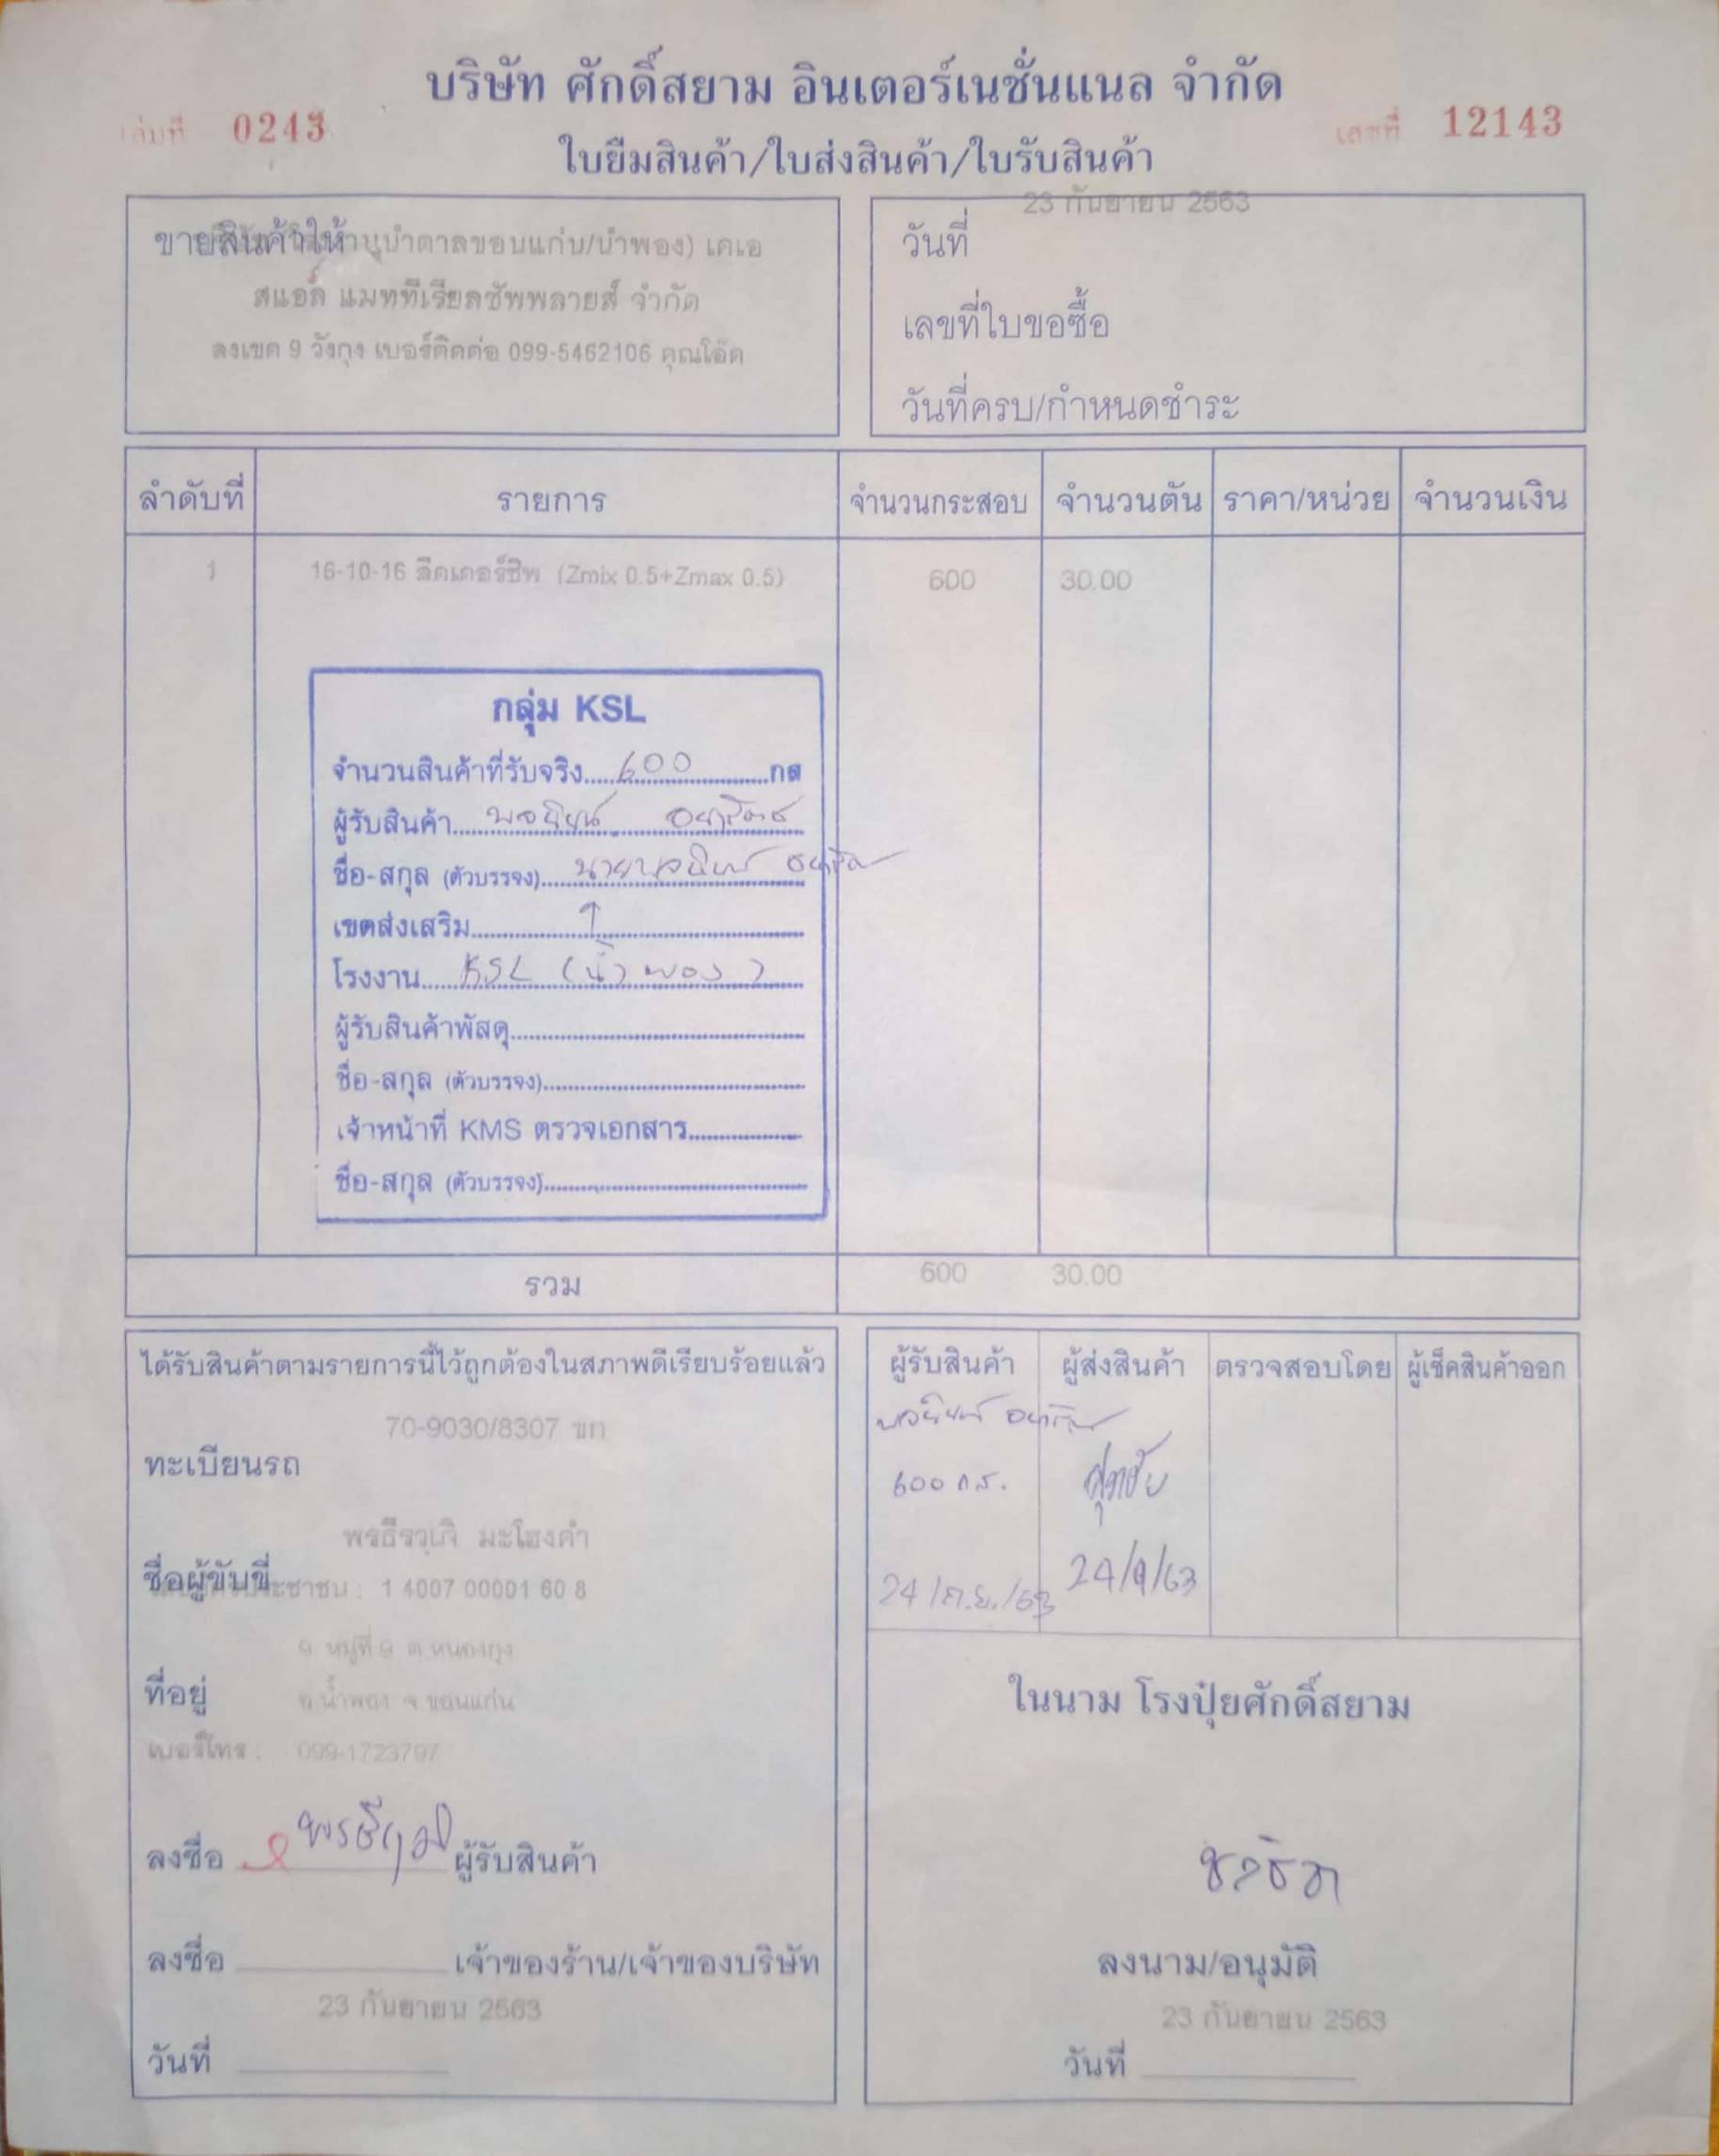 บริษัท ศักดิ์สยาม อินเตอร์เนชั่นแนล จำกัด
เล่มที่ 0243
เลขที่ 12143
ใบยืมสินค้า/ใบส่งสินค้า/ใบรับสินค้า
ขายสินค้าให้ ขอนแก่น/น้ำพอง) เคเอ
สแอล แมททีเรียลซัพพลายส์ จำกัด
ลงเขต 9 วังกุง เบอร์ติดต่อ 099-5462106 คุณโอ๊ต
23 กันยายน 2563
วันที่
เลขที่ใบขอซื้อ
วันที่ครบ/กำหนดชำระ
ลำดับที่ รายการ จำนวนกระสอบ จำนวนตัน ราคา/หน่วย จำนวนเงิน
1 16-10-16 ลีดเดอร์ชิพ (Zmix 0.5+Zmax 0.5) 600 30.00
กลุ่ม KSL
จำนวนสินค้าที่รับจริง 600 กส
ผู้รับสินค้า
ชื่อ-สกุล (ตัวบรรจง)
เขตส่งเสริม
โรงงาน KSL (น้ำพอง)
ผู้รับสินค้าพัสดุ
ชื่อ-สกุล (ตัวบรรจง)
เจ้าหน้าที่ KMS ตรวจเอกสาร
ชื่อ-สกุล (ตัวบรรจง)
รวม 600 30.00
ได้รับสินค้าตามรายการนี้ไว้ถูกต้องในสภาพดีเรียบร้อยแล้ว
70-9030/8307 ขก
ทะเบียนรถ
มะโฮงคำ
ชื่อผู้ขับขี่
ประชาชน : 1 4007 00001 60 8
9 หมู่ที่ 9 ต.หนองกุง
ที่อยู่ อ.น้ำพอง จ.ขอนแก่น
เบอร์โทร : 099-1723797
ลงชื่อ ผู้รับสินค้า
ลงชื่อ เจ้าของร้าน/เจ้าของบริษัท
23 กันยายน 2563
วันที่
ผู้รับสินค้า ผู้ส่งสินค้า ตรวจสอบโดย ผู้เช็คสินค้าออก
600 กส.
24/ก.ย./63 24/9/63
ในนาม โรงปุ๋ยศักดิ์สยาม
ลงนาม/อนุมัติ
23 กันยายน 2563
วันที่